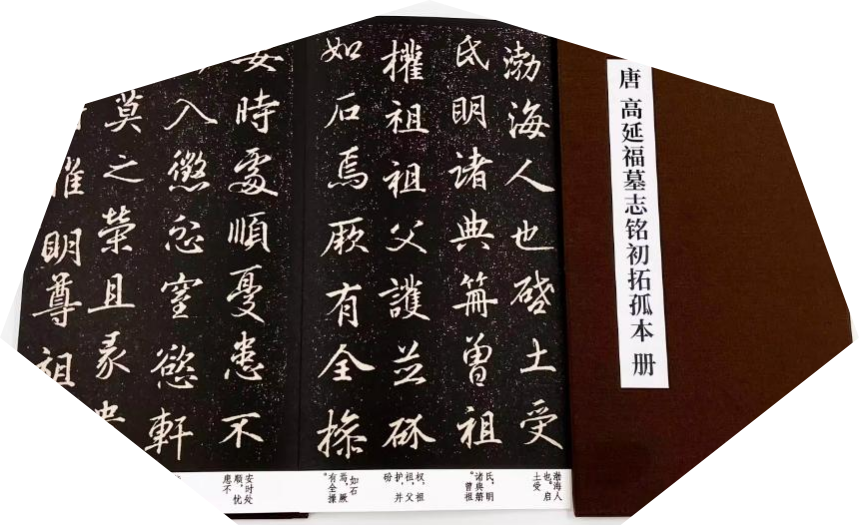 唐 高延福墓志铭初拓孤本 册
渤海人也啓土受
氏明諸典笧曾祖
權祖祖父護並砎
如石焉厥有全操
安時處順憂患不
入懲忿窒慾軒
莫之榮且彖
明尊祖
渤海人
也。启
土受
氏，明
诸典笧
。曾祖
权，祖
祖，父
护，并
砎
如石
焉，厥
有全操
。
安时处
顺，忧
患不